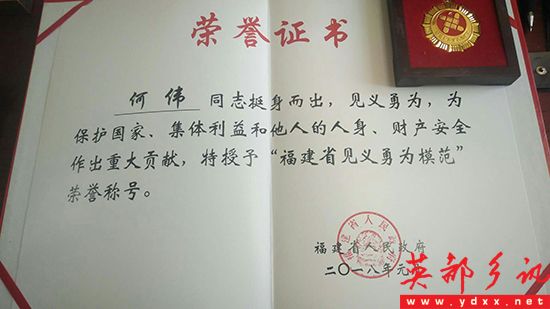 荣誉证书
何伟 同志挺身而出，见义勇为，为
保护国家、集体利益和他人的人身、财产安全
作出重大贡献，特授予“福建省见义勇为模范”
荣誉称号。
福建省人民政府
二〇一八年元月
英都乡讯
www.ydxx.net